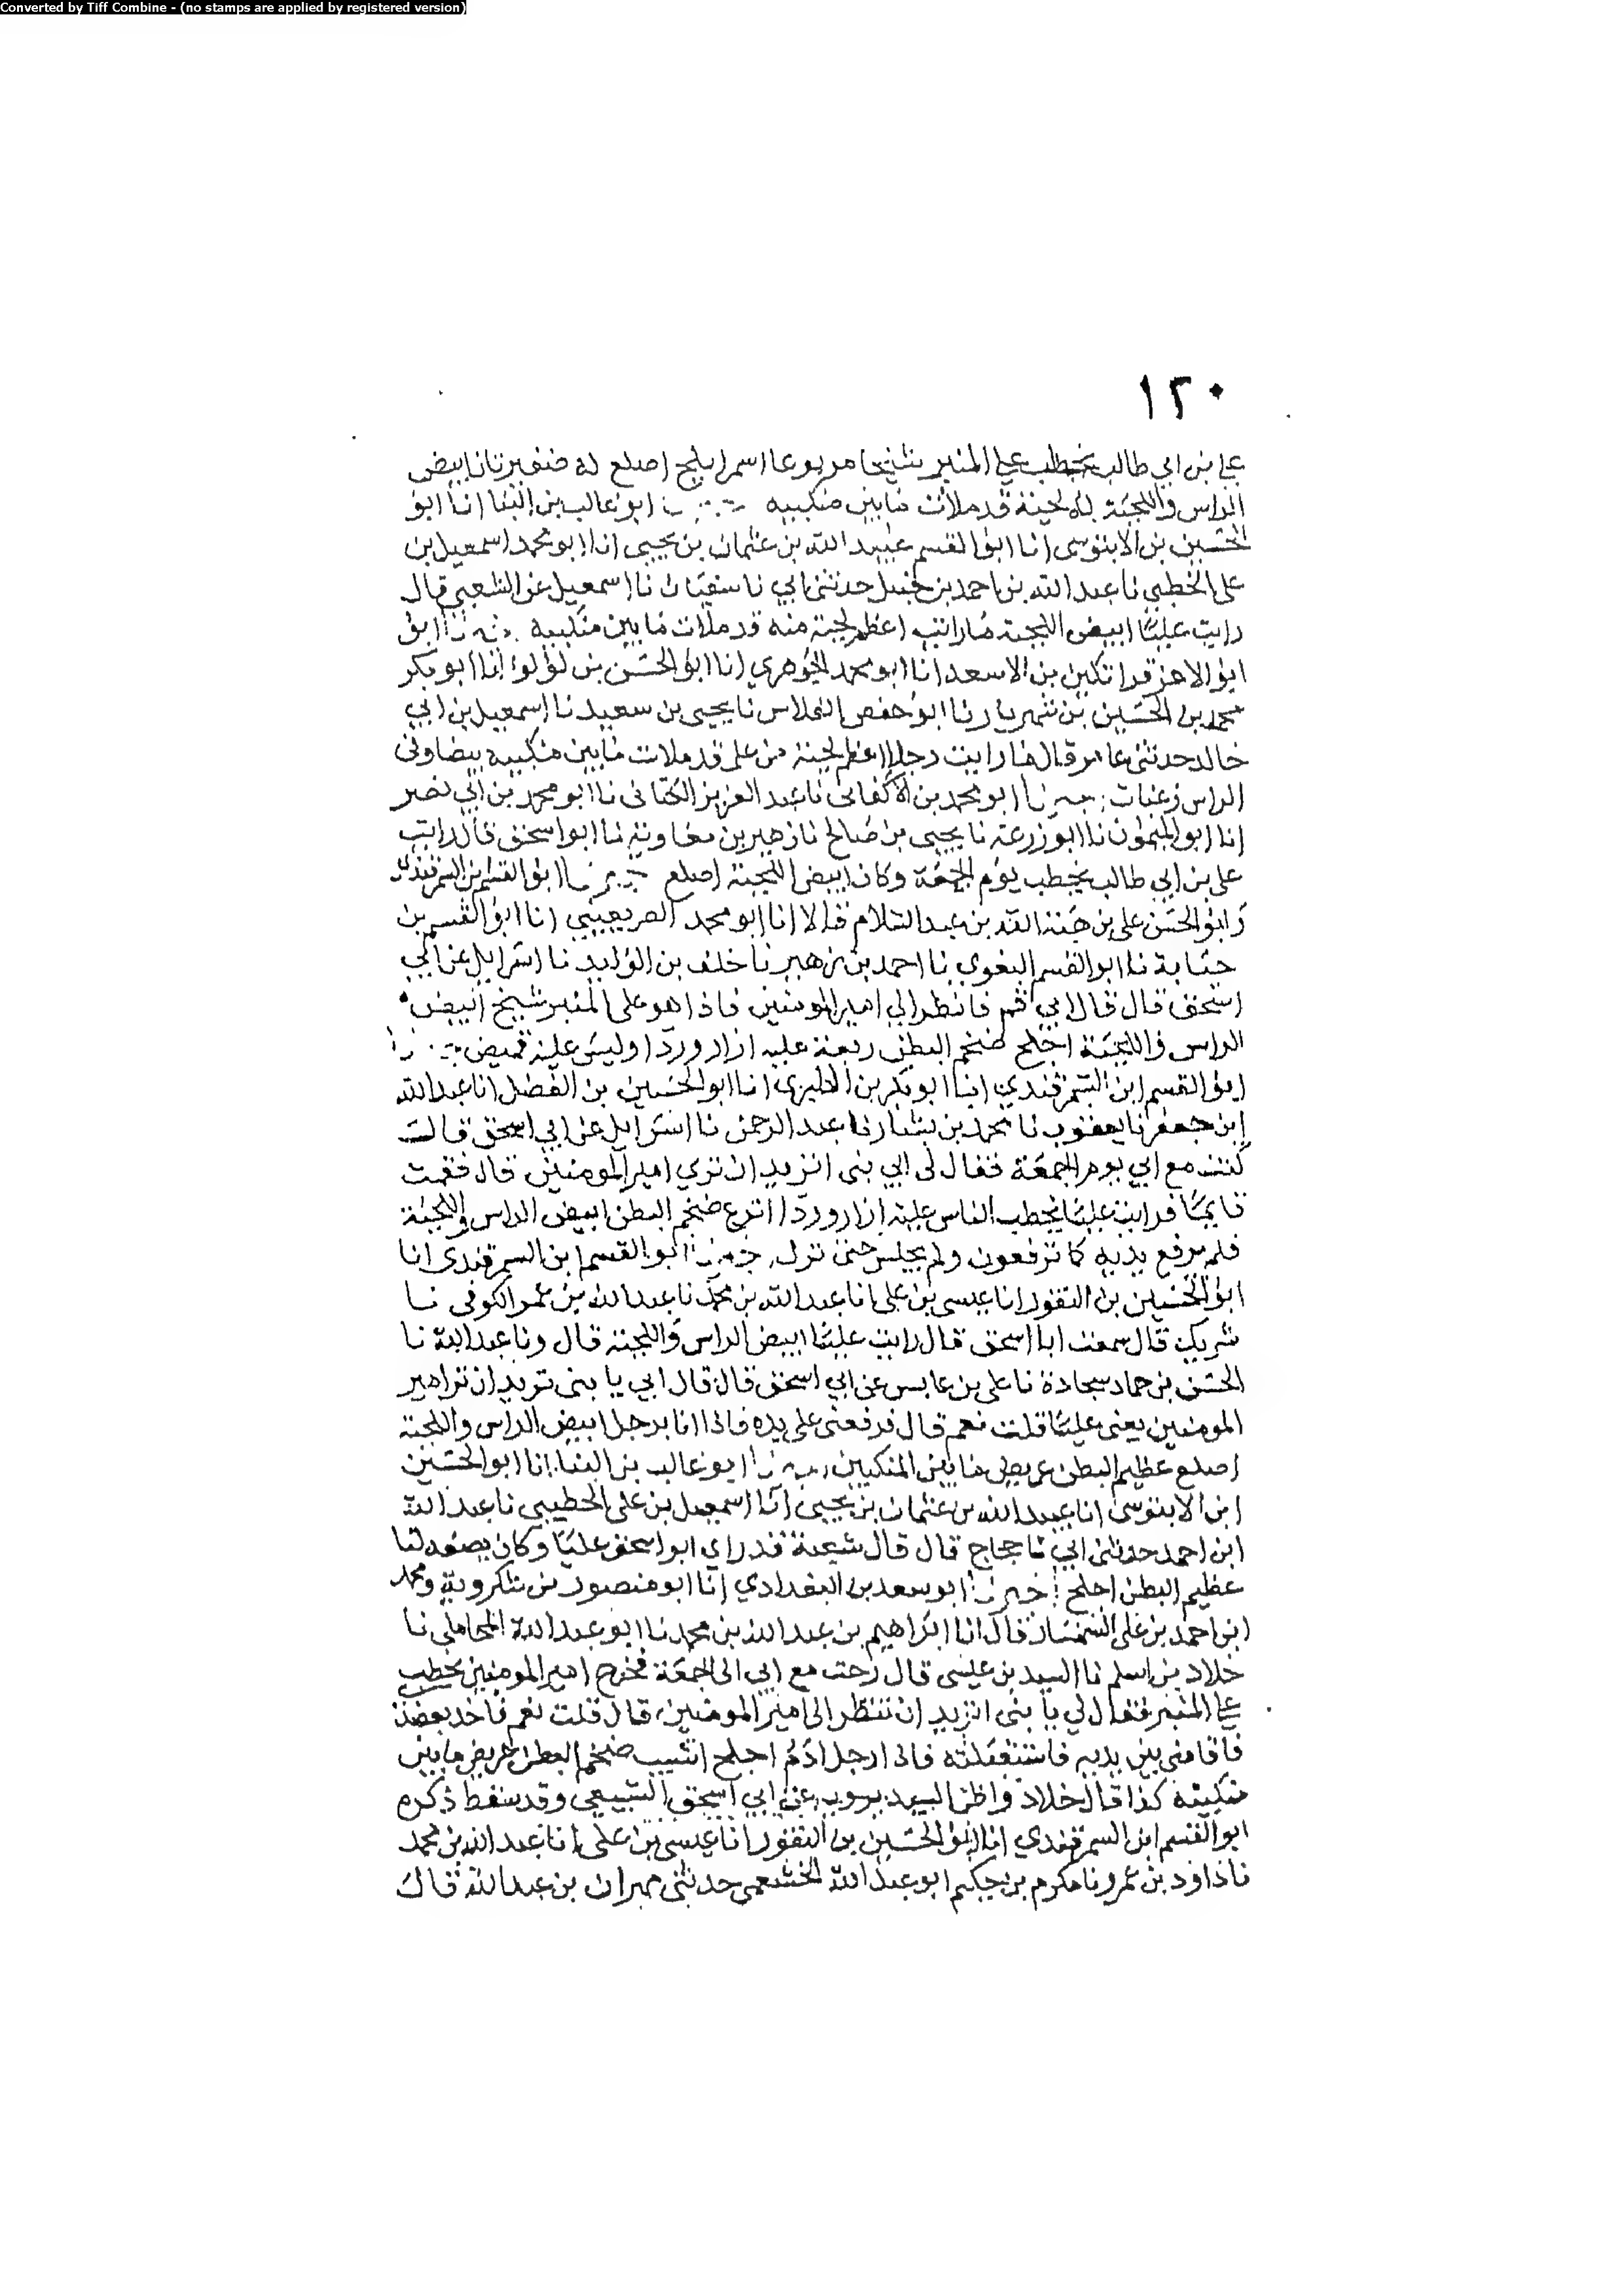 Converted by Tiff Combine - (no stamps are applied by registered version)
١٢٠
علي بن ابي طالب يخطب علي المنبر شيخا مربوعا اسمر ابلج اصلع له ضفيرتان ابيض
الراس واللحية له لحية قد ملات ما بين منكبيه ابو غالب بن البنا انا ابو
الحسين بن الابنوسى انا ابو القسم عبيد الله بن عثمان بن يحيى انا ابو محمد اسمعيل بن
على الخطبي نا عبد الله بن احمد بن حنبل حدثنى ابي نا سفيان نا اسمعيل عن الشعبي قال
رايت عليا ابيض اللحية ما رايت اعظم لحية منه قد ملات ما بين منكبيه ابو
ابو الاعز قراتكين بن الاسعد انا ابو محمد الجوهري انا ابو الحسن بن لؤلؤ انا ابو بكر
محمد بن الحسين بن شهريار نا ابو حفص الفلاس نا يحيى بن سعيد نا اسمعيل بن ابي
خالد حدثنى عامر قال ما رايت رجلا اعظم لحية من على قد ملات ما بين منكبيه بيضا وفى
الراس زغبات ابو محمد بن الاكفانى نا عبد العزيز الكتانى نا ابو محمد بن ابي نصر
انا ابو الميمون نا ابو زرعة نا يحيى بن صالح نا زهير بن معاوية نا ابو اسحق قال رايت
على بن ابي طالب يخطب يوم الجمعة وكان ابيض اللحية اصلع ابو القسم بن السمرقندى
وابو الحسن على بن هبة الله بن عبد السلام قالا انا ابو محمد الصريفيني انا ابو القسم بن
حبابة نا ابو القسم البغوي نا احمد بن زهير نا خلف بن الوليد نا اسرايل عن ابي
اسحق قال قال ابي قم فانظر الي امير المومنين فاذا هو على المنبر شيخ ابيض
الراس واللحية اجلح ضخم البطن ربعة عليه ازار وردا وليس عليه قميص
ابو القسم ابن السمرقندي انا ابو بكر بن الطبري انا ابو الحسين بن الفضل انا عبد الله
ابن جعفر نا يعقوب نا محمد بن بشار نا عبد الرحمن نا اسرايل عن ابي اسحق قالت
كنت مع ابي يوم الجمعة فقال لى ابي بنى اتريد ان تري امير المومنين قال فقمت
قايما فرايت عليا يخطب الناس عليه ازار وردا انزع ضخم البطن ابيض الراس واللحية
فلم يرفع يديه كما ترفعون ولم يجلس حتى نزل ابو القسم ابن السمرقندى انا
ابو الحسين بن النقور انا عيسى بن على انا عبد الله بن محمد نا عبد الله بن عمر الكوفى نا
شريك قال سمعت ابا اسحق قال رايت عليا ابيض الراس واللحية قال ونا عبد الله نا
الحسن بن حماد سجادة نا على بن عابس عن ابي اسحق قال قال ابي يا بنى تريد ان ترا امير
المومنين يعنى عليا قلت نعم قال فرفعنى على يده فاذا انا برجل ابيض الراس واللحية
اصلع عظيم البطن عريض ما بين المنكبين ابو غالب بن البنا انا ابو الحسين
ابن الابنوسى انا عبيد الله بن عثمان بن يحيى انا اسمعيل بن على الخطيبى نا عبد الله
ابن احمد حدثنى ابي نا حجاج قال قال شعبة قد راي ابو اسحق عليا وكان يصفه لنا
عظيم البطن اجلح ابو سعد بن البغدادي انا ابو منصور بن شكروية ومحمد
ابن احمد بن على السمسار قال انا ابراهيم بن عبد الله بن محمد نا ابو عبد الله المحاملى نا
خلاد بن اسلم نا السيد بن عيسى قال رحت مع ابي الى الجمعة فخرج امير المومنين يخطب
علي المنبر فقال لي يا بنى اتريد ان تنظر الى امير المومنين قال قلت نعم فاخذ بعضد
فاقامنى بين يديه فاستقبلته فاذا رجل ادم اجلح اشيب ضخم البطن عريض ما بين
منكبيه كذا قال خلاد واظن السيد يرويه عن ابي اسحق السبيعي وقد سقط ذكره
ابو القسم ابن السمرقندي انا ابو الحسين بن النقور انا عيسى بن على انا عبد الله بن محمد
نا داود بن عمرو نا مكرم بن حكيم ابو عبد الله الخثعمى حدثنى مهران بن عبد الله قال